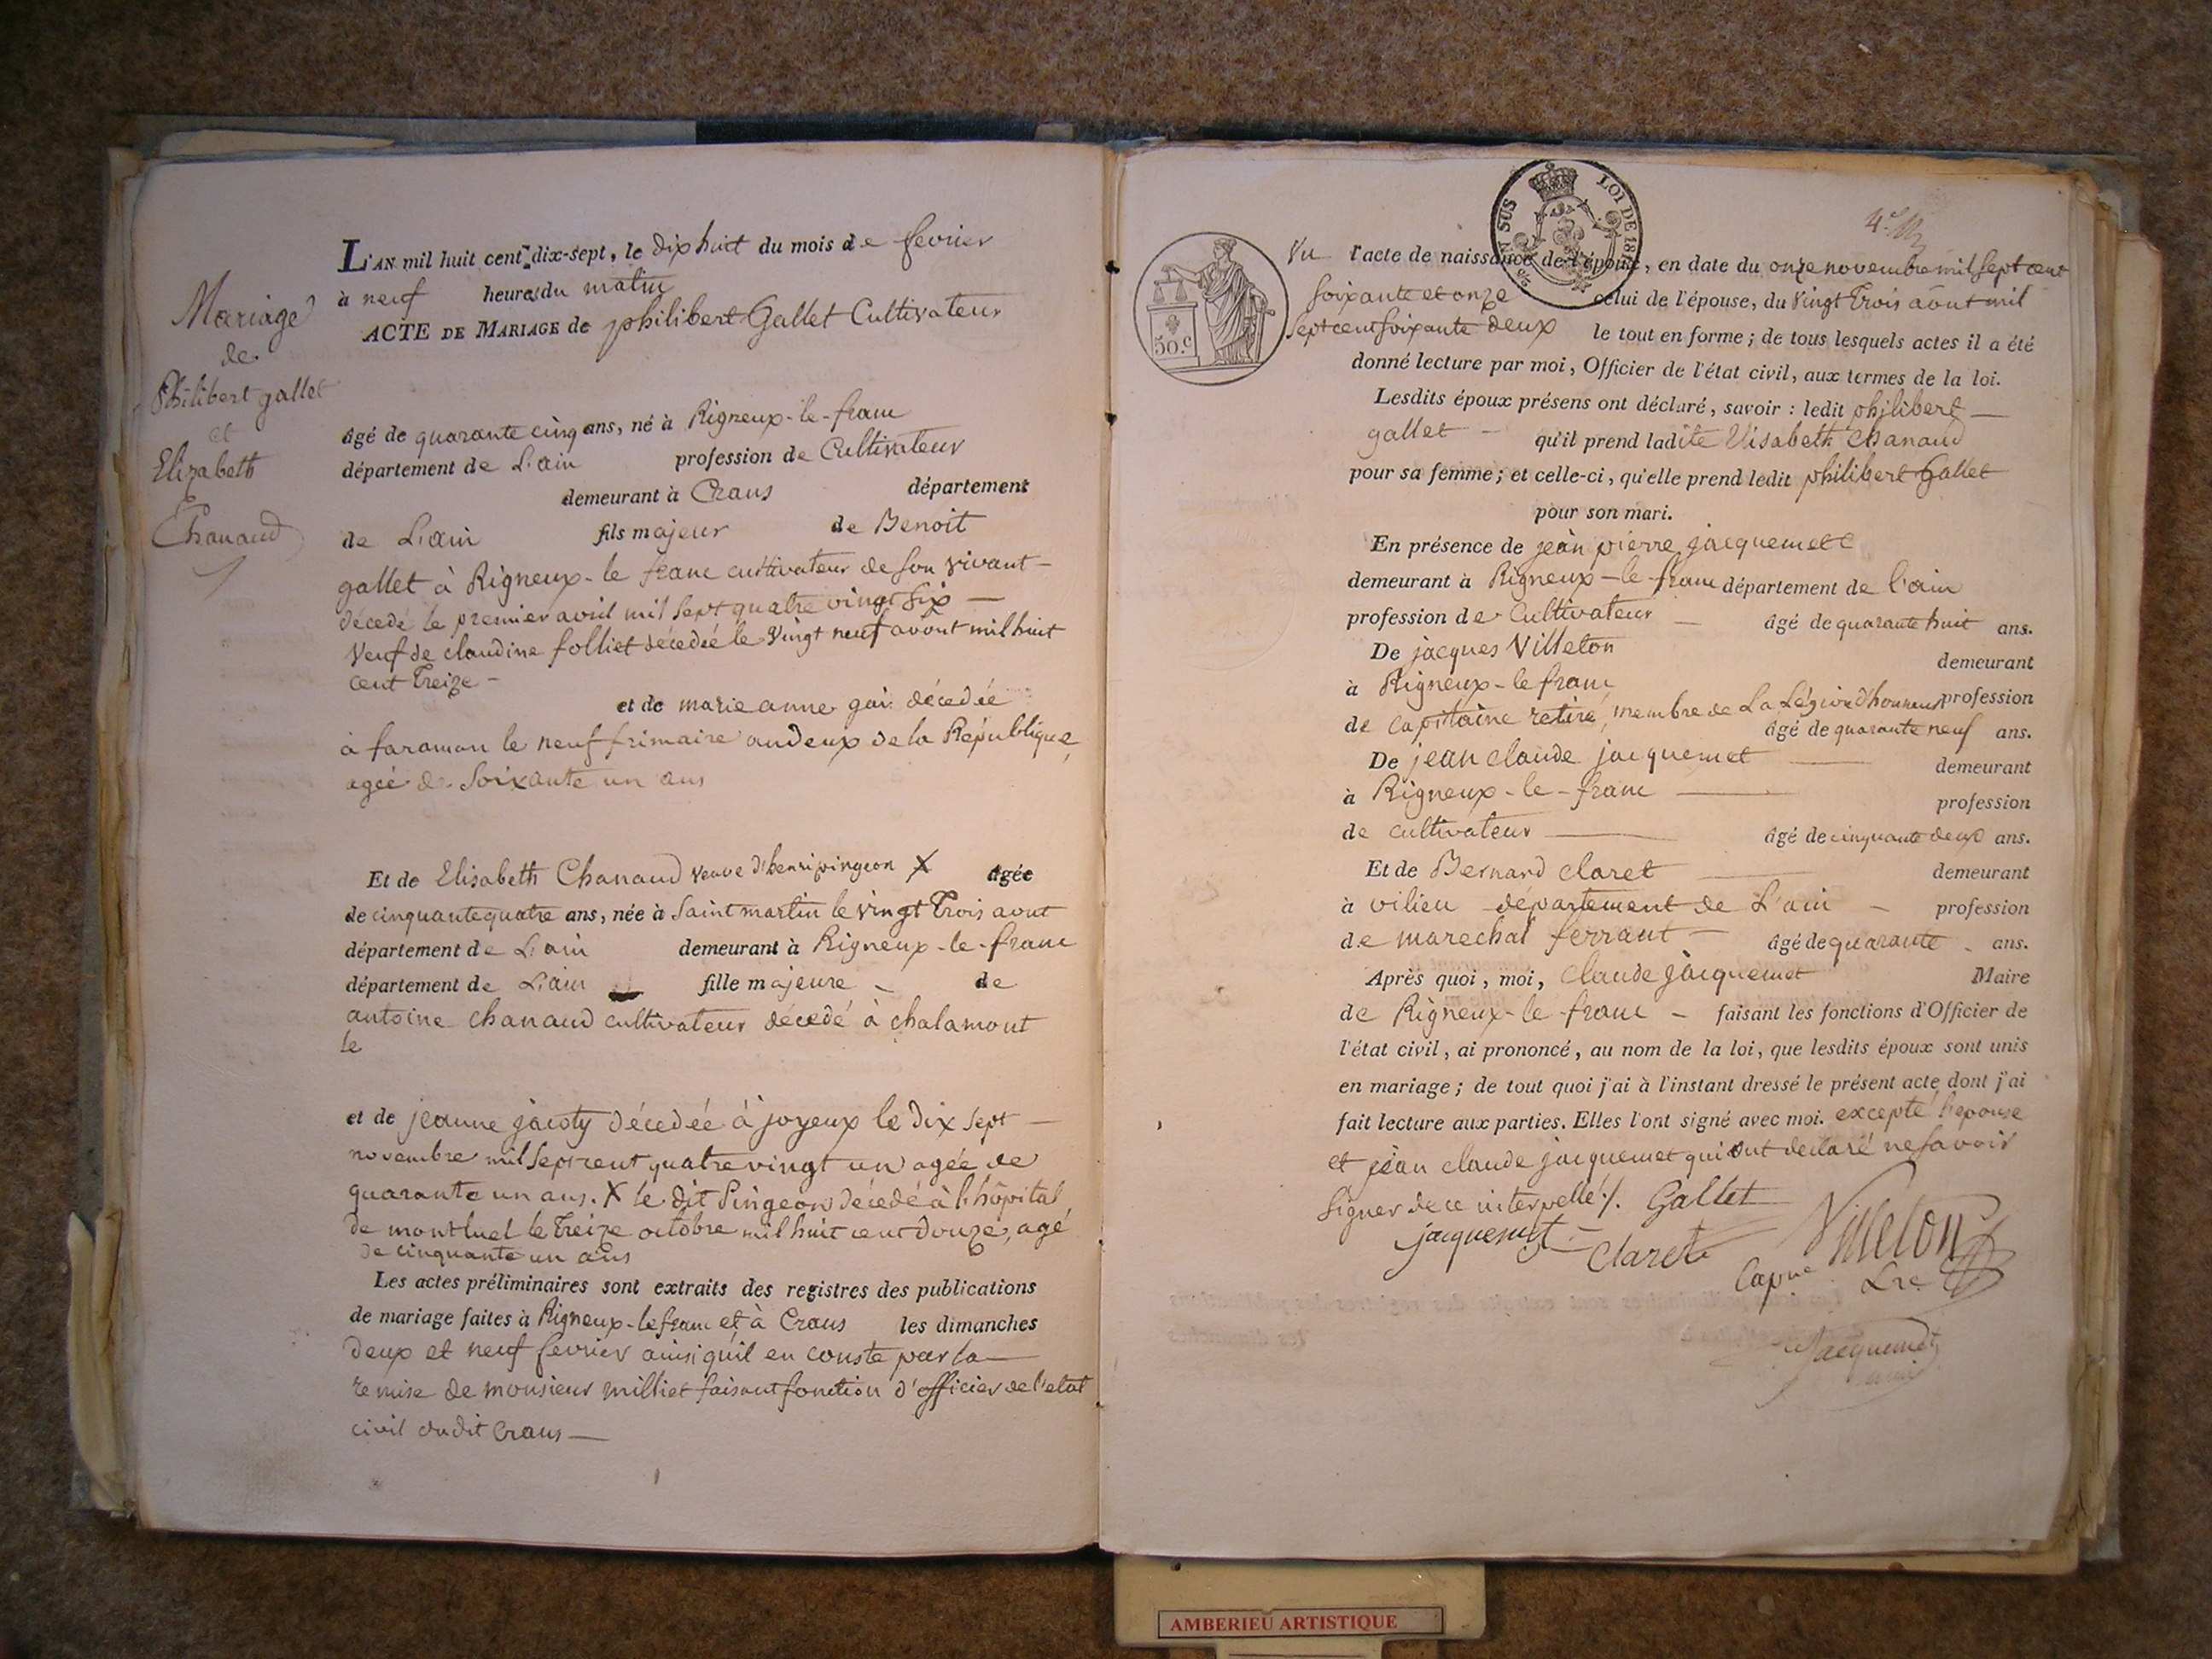 Mariage
de
Philibert gallet
et
Elizabeth
Chanaud
L'AN mil huit cent dix-sept, le dix huit du mois de fevrier
à neuf heures du matin
ACTE DE MARIAGE de philibert Gallet Cultivateur
âgé de quarante cinq ans, né à Rigneux-le-franc
département de L'ain profession de Cultivateur
demeurant à Crans département
de L'ain fils majeur de Benoit
gallet à Rigneux-le franc cultivateur de son vivant -
décedé le premier avril mil sept quatre vingt six -
veuf de claudine folliet décedée le vingt neuf avout mil huit
cent treize -
et de marie anne décedée
à faraman le neuf frimaire an deux de la République,
agée de soixante un ans
Et de Elisabeth Chanaud veuve d'henri pingeon X âgée
de cinquante quatre ans, née à Saint martin le vingt trois aout
département de L'ain demeurant à Rigneux-le-franc
département de L'ain fille majeure - de
antoine chanaud cultivateur décedé à chalamont
le
et de jeanne jacoty décedée à joyeux le dix sept -
novembre mil sept cent quatre vingt un agée de
quarante un ans. X le dit Pingeon décedé à l'hôpital
de montluel le treize octobre mil huit cent douze, agé
de cinquante un ans
Les actes préliminaires sont extraits des registres des publications
de mariage faites à Rigneux-le franc et à Crans les dimanches
deux et neuf fevrier ainsi qu'il en conste par la
remise de monsieur milliet faisant fonction d'officier de l'etat
civil dudit Crans -
SUS LOI DE 18
50.c
Vu l'acte de naissance de l'époux, en date du onze novembre mil sept cent
soixante et onze celui de l'épouse, du vingt trois aôut mil
sept cent soixante deux le tout en forme; de tous lesquels actes il a été
donné lecture par moi, Officier de l'état civil, aux termes de la loi.
Lesdits époux présens ont déclaré, savoir : ledit philibert -
gallet - qu'il prend ladite Elisabeth Chanaud
pour sa femme; et celle-ci, qu'elle prend ledit philibert Gallet
pour son mari.
En présence de jean pierre jacquemet
demeurant à Rigneux-le-franc département de l'ain
profession de Cultivateur - âgé de quarante huit ans.
De jacques Villeton demeurant
à Rigneux-le franc profession
de capitaine retiré, membre de La Légion d'honneur âgé de quarante neuf ans.
De jean claude jacquemet - demeurant
à Rigneux-le-franc - profession
de cultivateur - âgé de cinquante deux ans.
Et de Bernard Claret - demeurant
à vilieu département de L'ain - profession
de marechal ferrant - âgé de quarante - ans.
Après quoi, moi, Claude jacquemet Maire
de Rigneux-le-franc - faisant les fonctions d'Officier de
l'état civil, ai prononcé, au nom de la loi, que lesdits époux sont unis
en mariage; de tout quoi j'ai à l'instant dressé le présent acte dont j'ai
fait lecture aux parties. Elles l'ont signé avec moi. excepté l'epouse
et jean claude jacquemet qui ont declaré ne savoir
signer de ce interpellé ./. Gallet
jacquemet Claret Villeton
Capne
Jacquemet
AMBERIEU ARTISTIQUE